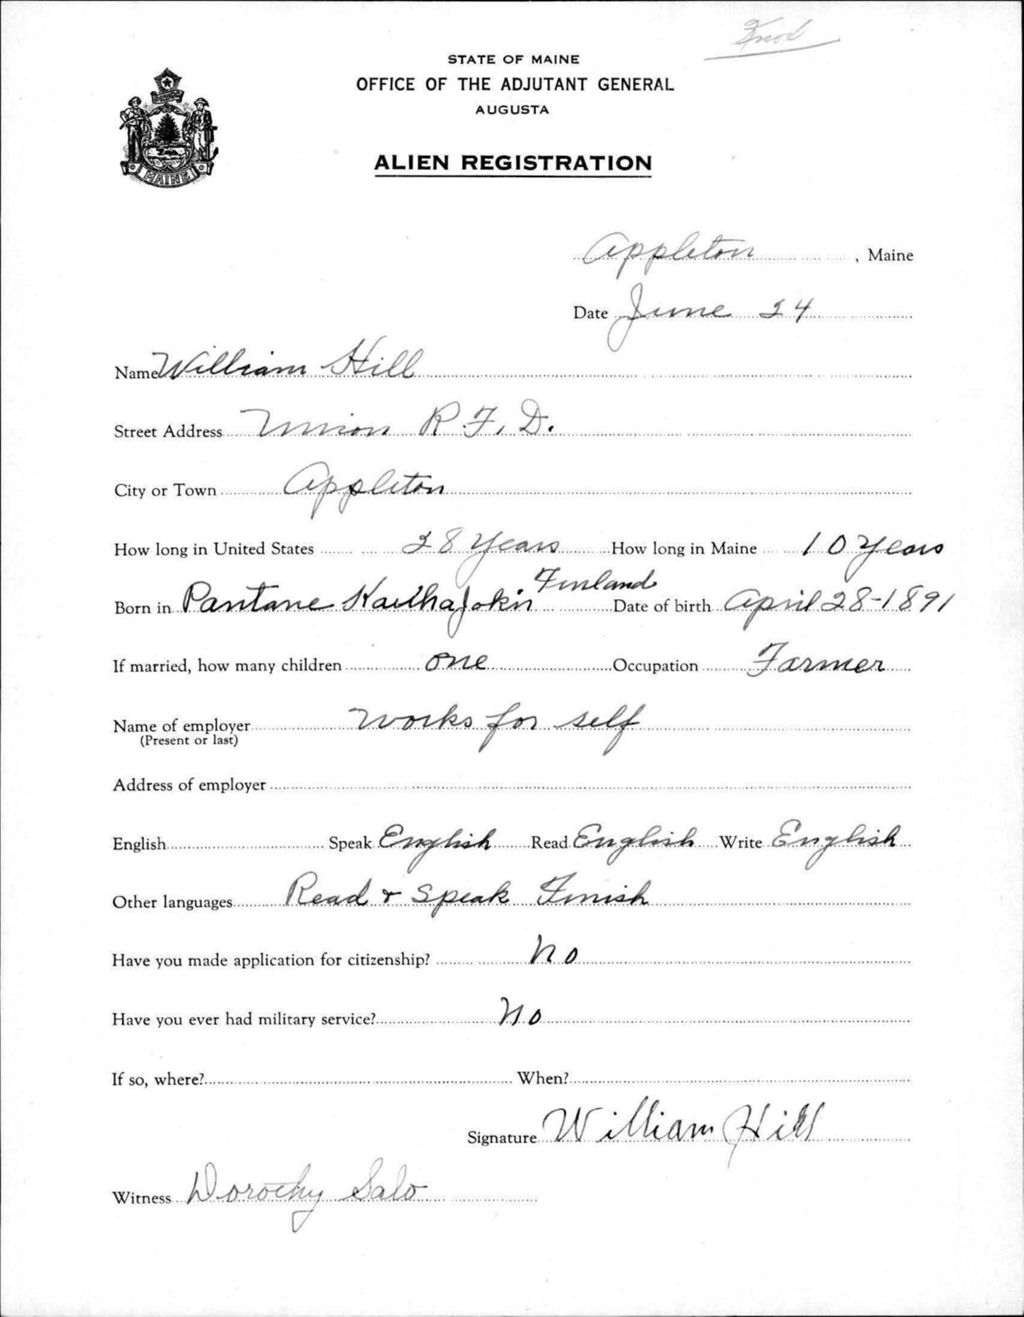 Knox
STATE OF MAINE
OFFICE OF THE ADJUTANT GENERAL
AUGUSTA
MAINE
ALIEN REGISTRATION
Appleton, Maine
Date June 24
Name William Hill
Street Address Union R.F.D.
City or Town Appleton
How long in United States 28 years How long in Maine 10 years
Born in Pantane Kauhajokir Finland Date of birth April 28-1891
If married, how many children one Occupation Farmer
Name of employer works for self
(Present or last)
Address of employer
English Speak English Read English Write English
Other languages Read + Speak Finish
Have you made application for citizenship? no
Have you ever had military service? no
If so, where? When?
Signature William Hill
Witness Dorothy Salo